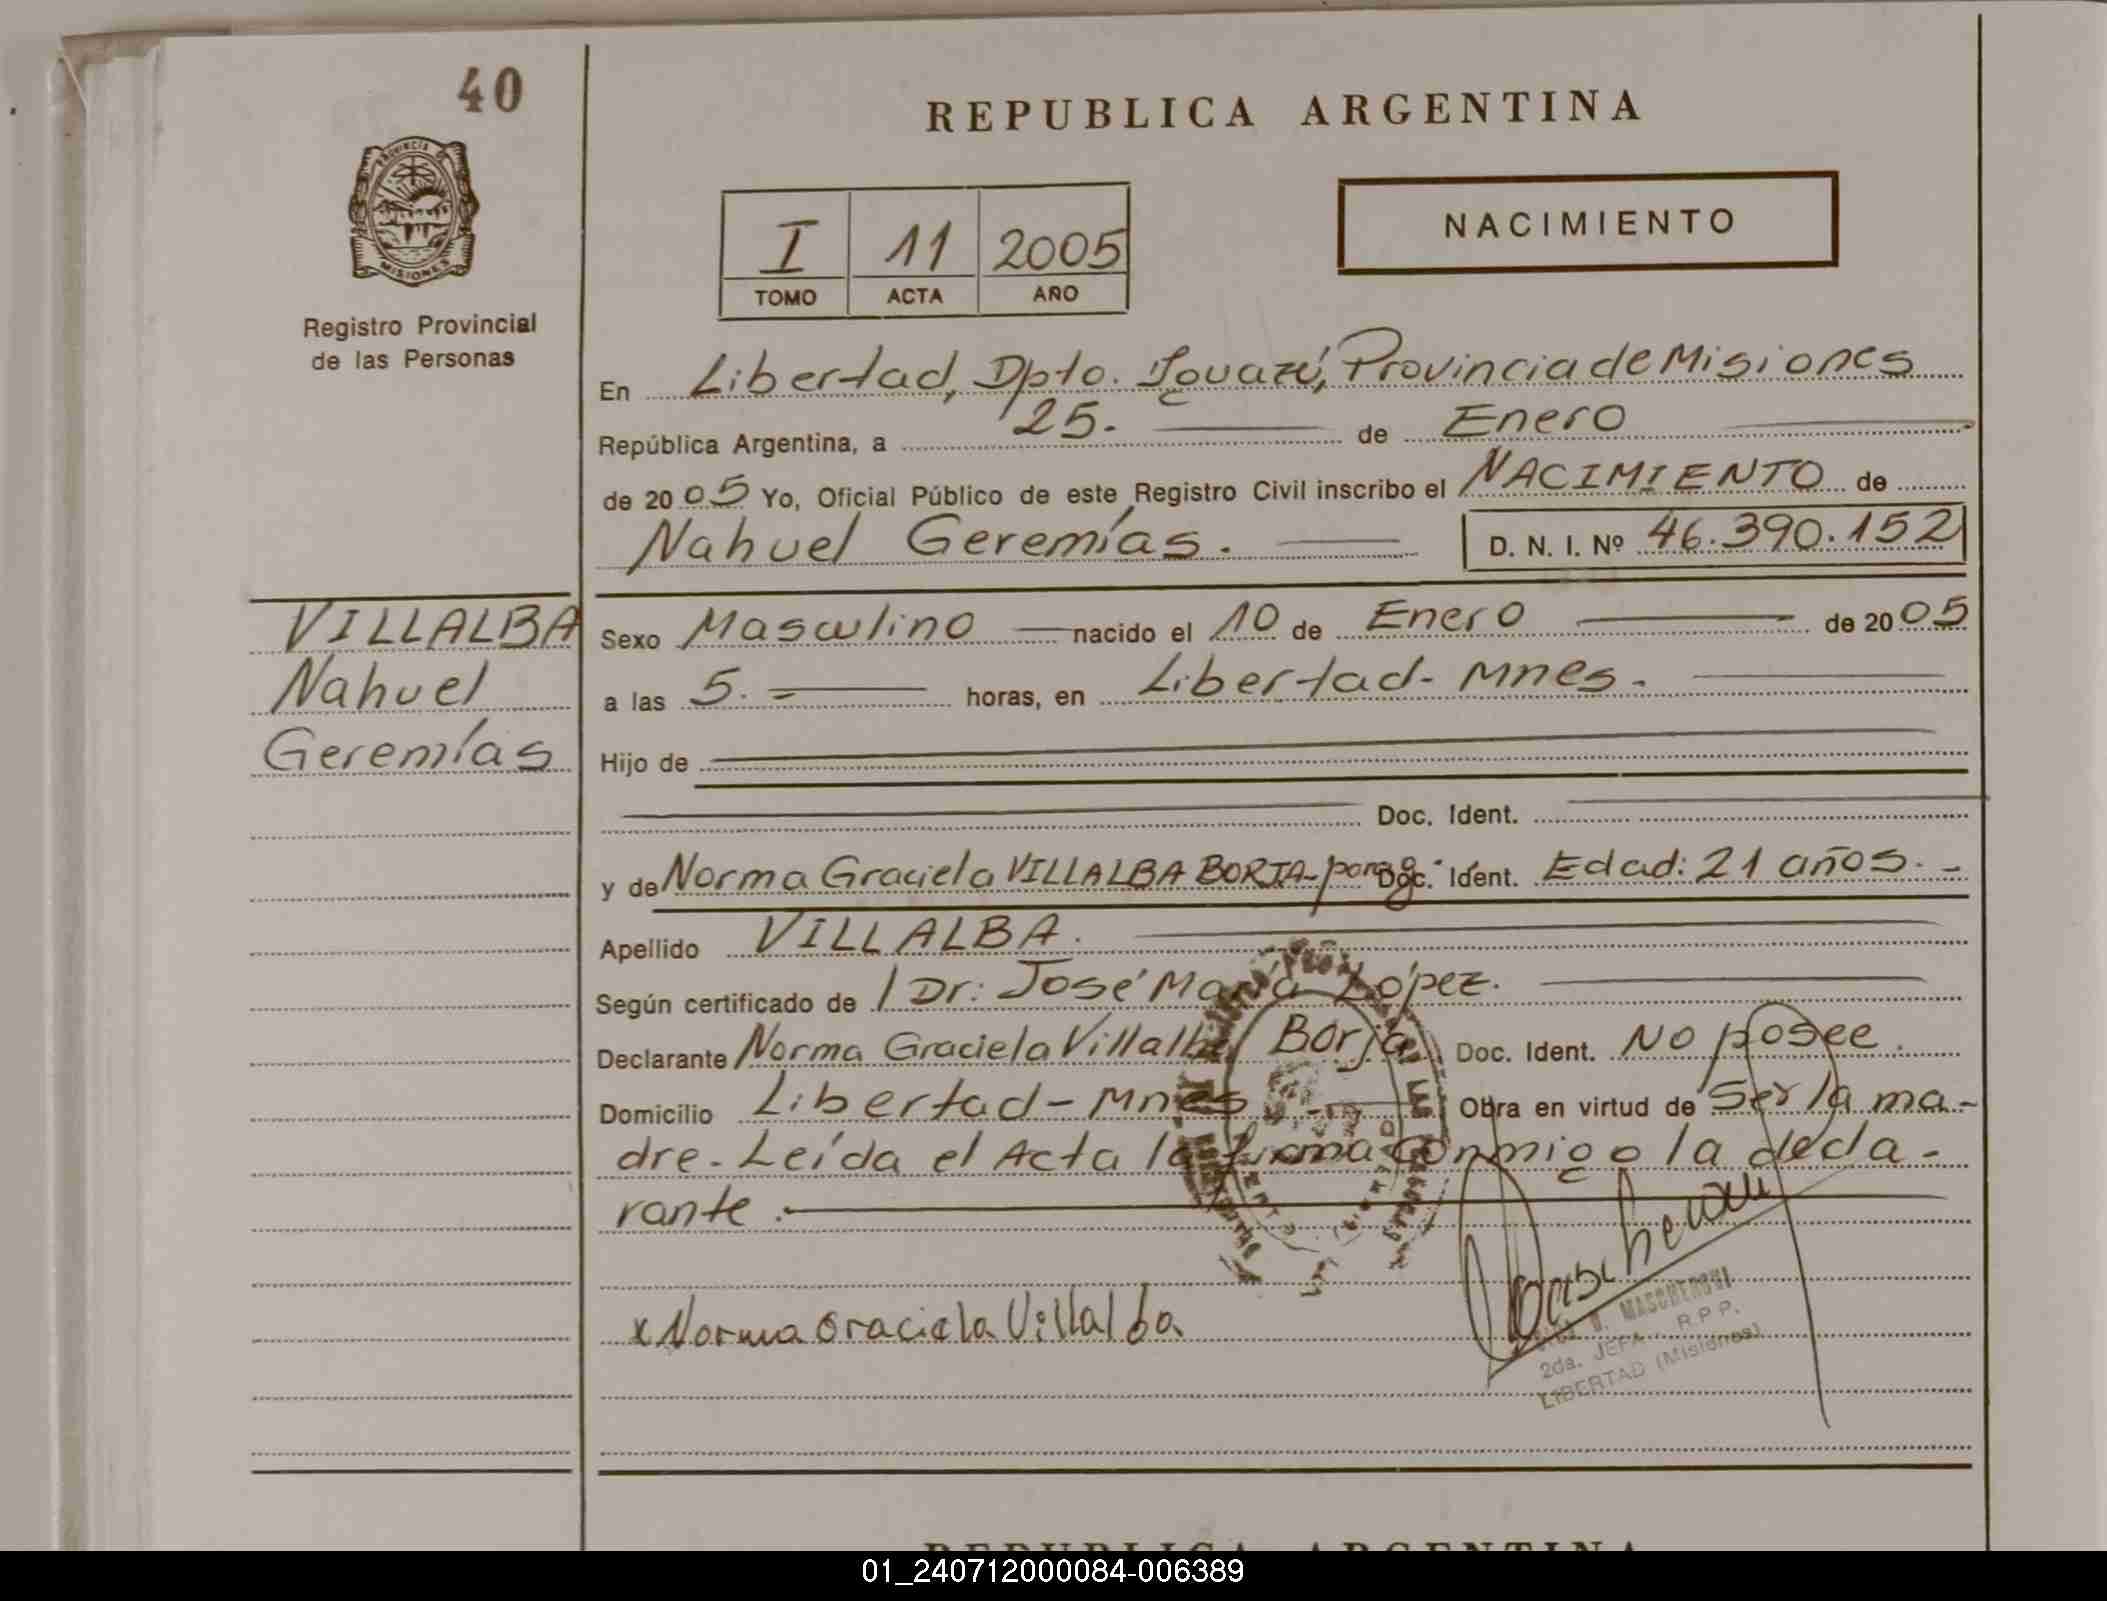 40
PROVINCIA DE
MISIONES
Registro Provincial
de las Personas
VILLALBA
Nahuel
Geremías
REPUBLICA ARGENTINA
I 11 2005
TOMO ACTA AÑO
NACIMIENTO
En Libertad, Dpto. Iguazú, Provincia de Misiones
República Argentina, a 25. de Enero
de 2005 Yo, Oficial Público de este Registro Civil inscribo el NACIMIENTO de
Nahuel Geremías. D. N. I. Nº 46.390.152
Sexo Masculino nacido el 10 de Enero de 2005
a las 5. horas, en Libertad - Mnes.
Hijo de
Doc. Ident.
y de Norma Graciela VILLALBA BORJA - parag. Doc. Ident. Edad: 21 años. -
Apellido VILLALBA.
Según certificado de Dr: José María López.
Declarante Norma Graciela Villalba Borja Doc. Ident. No posee.
Domicilio Libertad - Mnes Obra en virtud de ser la ma-
dre. Leída el Acta la firma conmigo la decla-
rante.
x Norma Graciela Villalba
MASCHERONI
2da. JEFA R.P.P.
LIBERTAD (Misiones)
REPUBLICA ARGENTINA
01_240712000084-006389